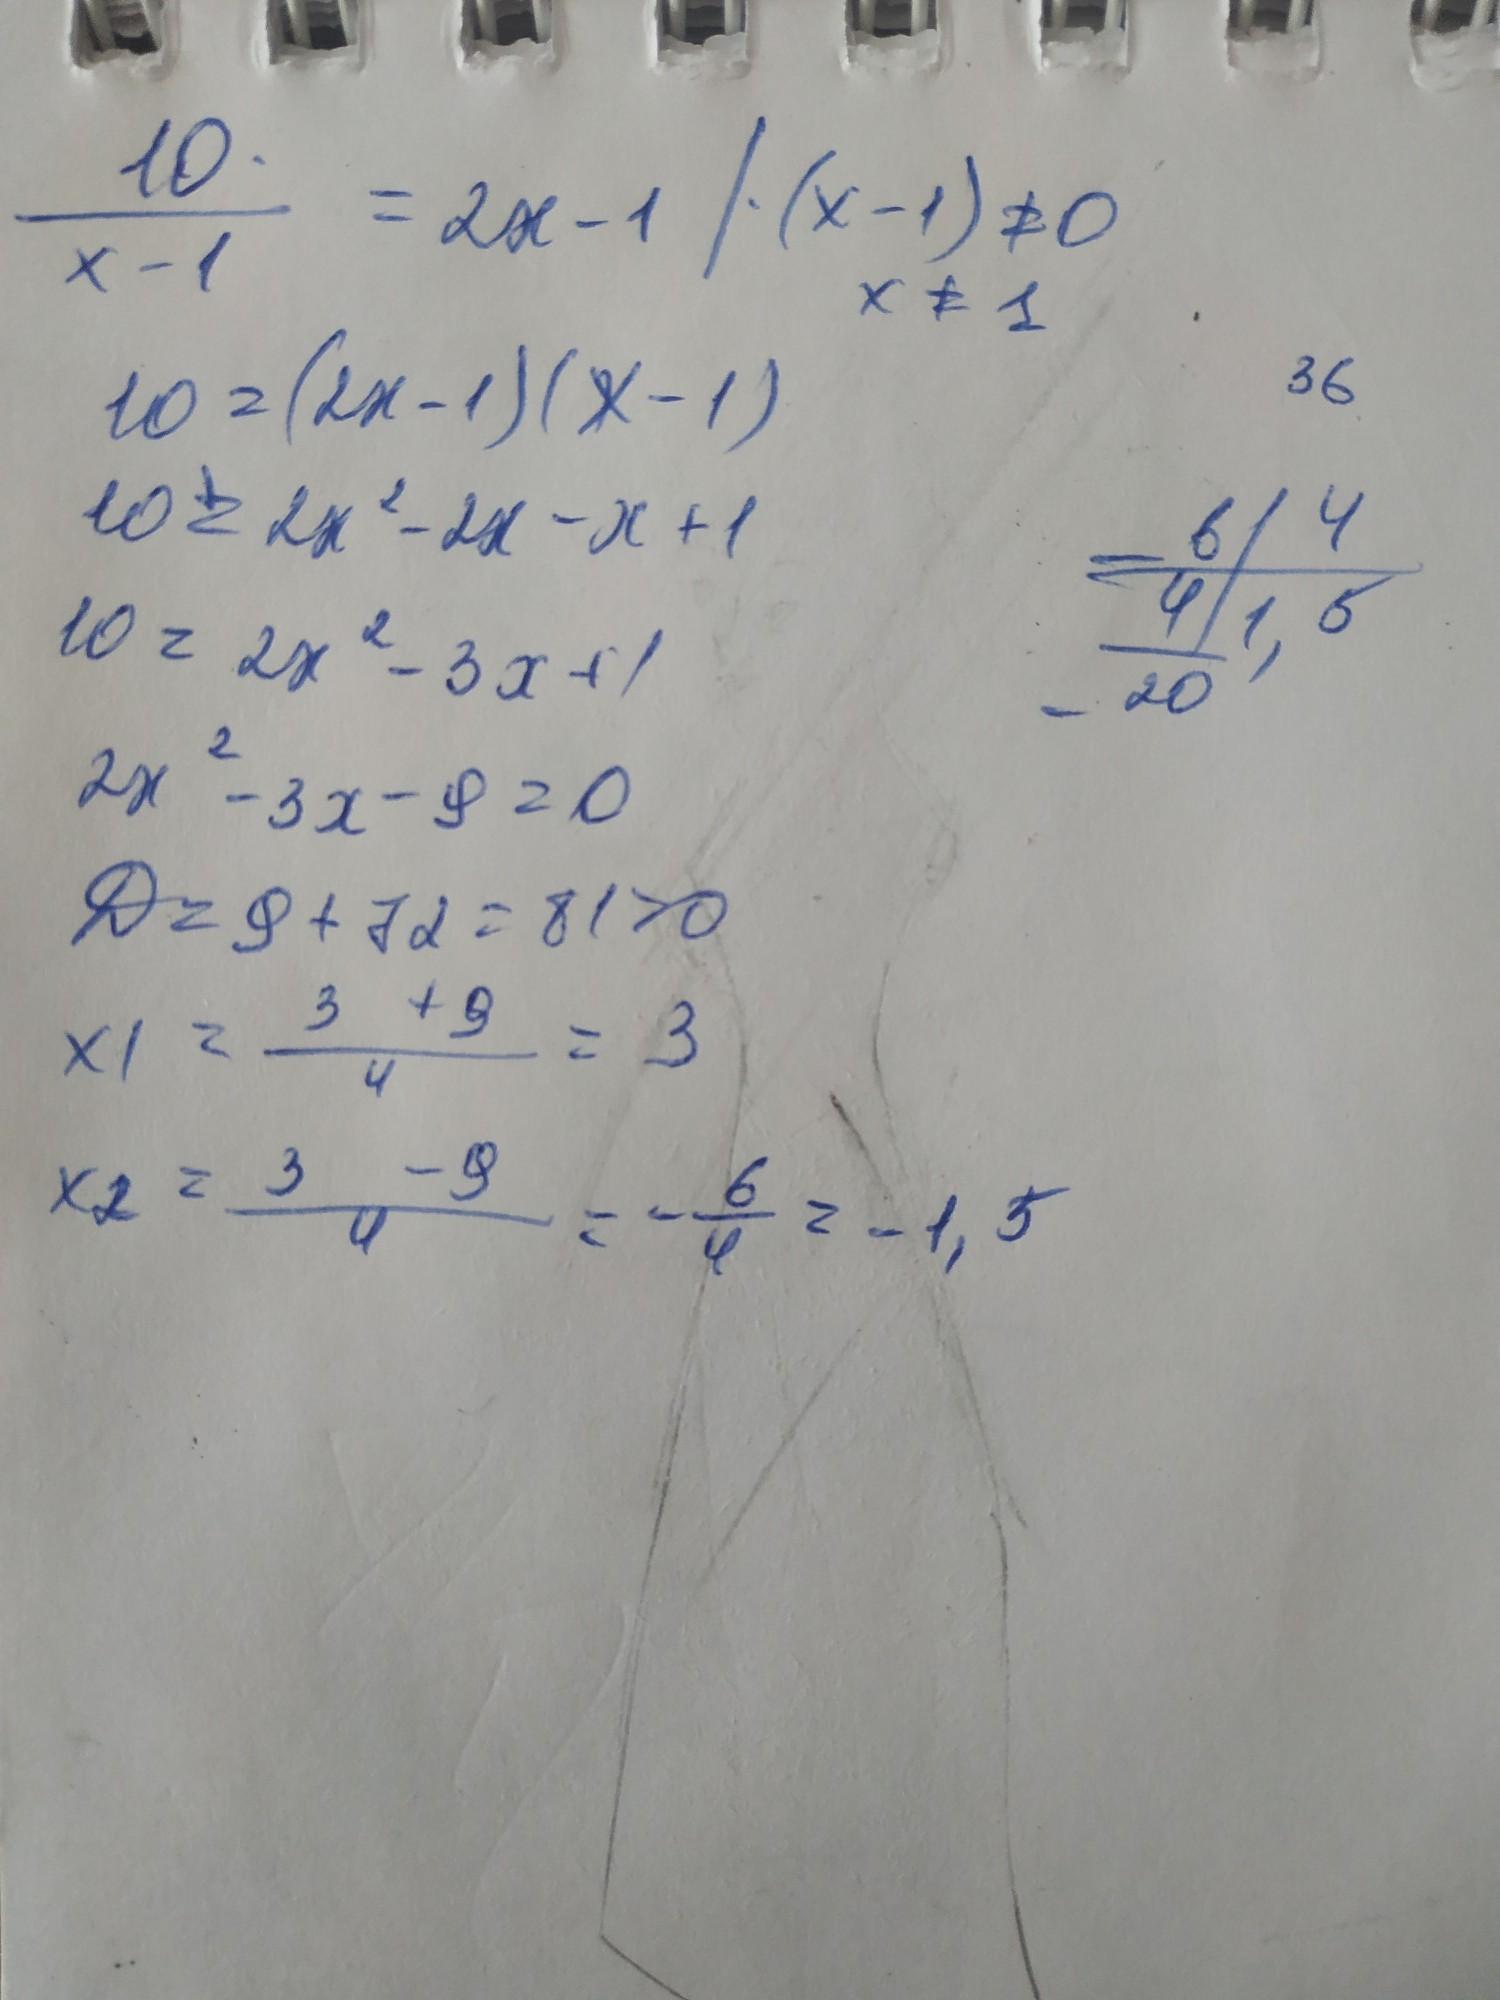 10 .
x - 1 = 2x - 1 / · (x - 1) ≠ 0
x ≠ 1
10 = (2x - 1)(x - 1)
10 = 2x² - 2x - x + 1
10 = 2x² - 3x + 1
2x² - 3x - 9 = 0
D = 9 + 72 = 81 > 0
x1 = 3 + 9 / 4 = 3
x2 = 3 - 9 / 4 = - 6/4 = - 1,5
36
- 6 / 4
4 / 1,5
- 20